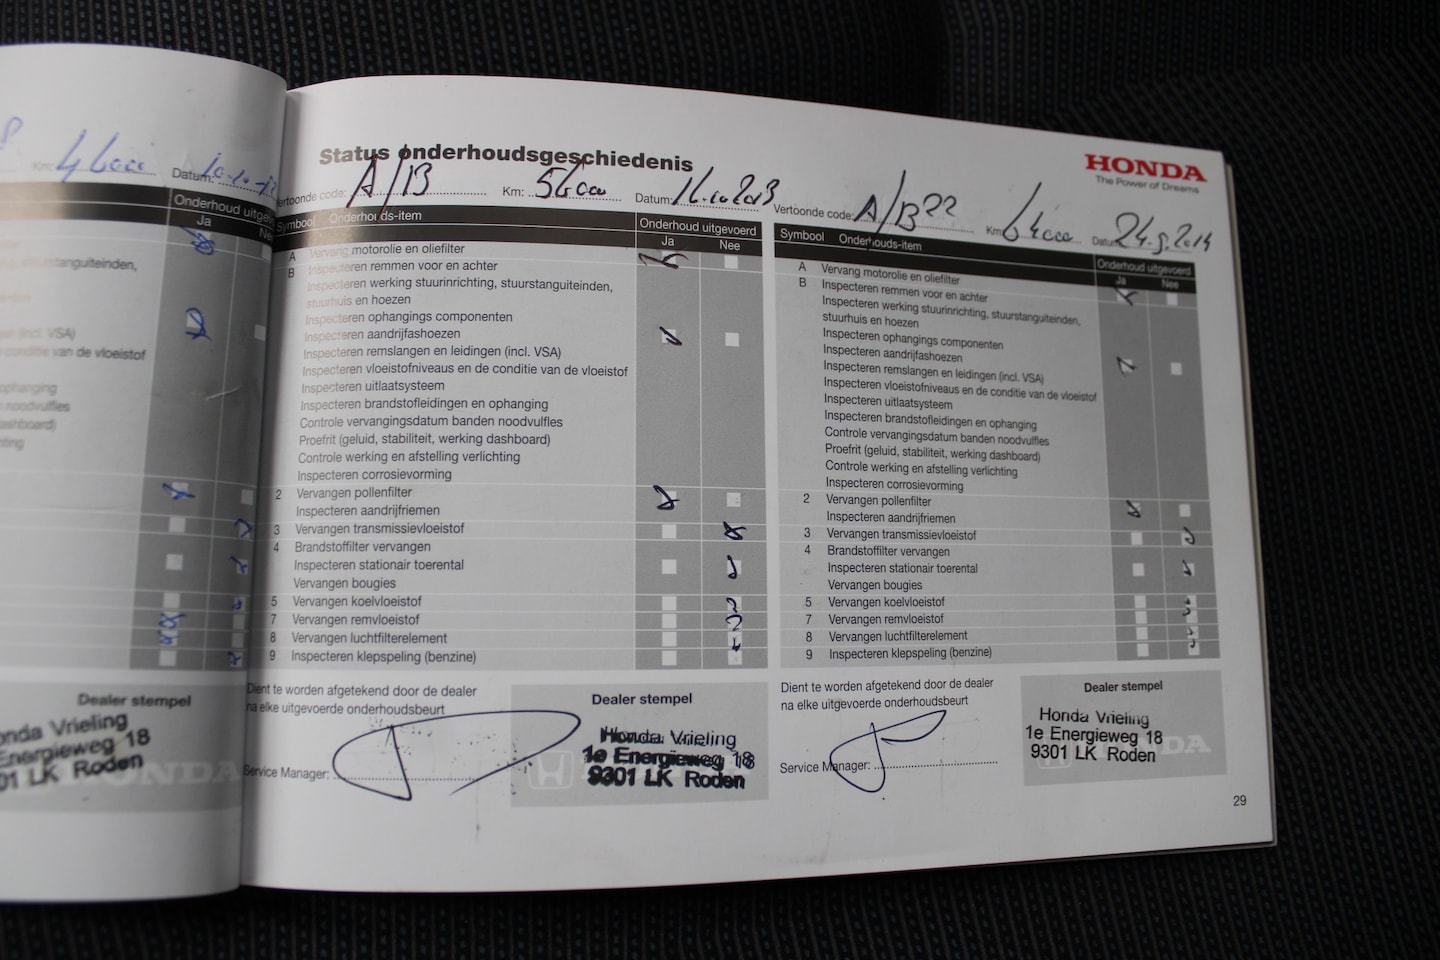 Km: 46000 Datum:
Onderhoud uitgevoerd
Ja Nee
stuurstanguiteinden,
(incl. VSA)
conditie van de vloeistof
ophanging
noodvulfles
dashboard)
Dealer stempel
Honda Vrieling
Energieweg 18
01 LK Roden
Status onderhoudsgeschiedenis
Vertoonde code: A/B Km: 56000 Datum: 16.10.2013
Symbool Onderhouds-item Onderhoud uitgevoerd
Ja Nee
A Vervang motorolie en oliefilter
B Inspecteren remmen voor en achter
Inspecteren werking stuurinrichting, stuurstanguiteinden,
stuurhuis en hoezen
Inspecteren ophangings componenten
Inspecteren aandrijfashoezen
Inspecteren remslangen en leidingen (incl. VSA)
Inspecteren vloeistofniveaus en de conditie van de vloeistof
Inspecteren uitlaatsysteem
Inspecteren brandstofleidingen en ophanging
Controle vervangingsdatum banden noodvulfles
Proefrit (geluid, stabiliteit, werking dashboard)
Controle werking en afstelling verlichting
Inspecteren corrosievorming
2 Vervangen pollenfilter
Inspecteren aandrijfriemen
3 Vervangen transmissievloeistof
4 Brandstoffilter vervangen
Inspecteren stationair toerental
Vervangen bougies
5 Vervangen koelvloeistof
7 Vervangen remvloeistof
8 Vervangen luchtfilterelement
9 Inspecteren klepspeling (benzine)
Dient te worden afgetekend door de dealer
na elke uitgevoerde onderhoudsbeurt
Service Manager:
Dealer stempel
Honda Vrieling
1e Energieweg 18
9301 LK Roden
HONDA
The Power of Dreams
Vertoonde code: A/B 22 Km 64000 Datum 24.9.2014
Symbool Onderhouds-item Onderhoud uitgevoerd
Ja Nee
A Vervang motorolie en oliefilter
B Inspecteren remmen voor en achter
Inspecteren werking stuurinrichting, stuurstanguiteinden,
stuurhuis en hoezen
Inspecteren ophangings componenten
Inspecteren aandrijfashoezen
Inspecteren remslangen en leidingen (incl. VSA)
Inspecteren vloeistofniveaus en de conditie van de vloeistof
Inspecteren uitlaatsysteem
Inspecteren brandstofleidingen en ophanging
Controle vervangingsdatum banden noodvulfles
Proefrit (geluid, stabiliteit, werking dashboard)
Controle werking en afstelling verlichting
Inspecteren corrosievorming
2 Vervangen pollenfilter
Inspecteren aandrijfriemen
3 Vervangen transmissievloeistof
4 Brandstoffilter vervangen
Inspecteren stationair toerental
Vervangen bougies
5 Vervangen koelvloeistof
7 Vervangen remvloeistof
8 Vervangen luchtfilterelement
9 Inspecteren klepspeling (benzine)
Dient te worden afgetekend door de dealer
na elke uitgevoerde onderhoudsbeurt
Service Manager:
Dealer stempel
Honda Vrieling
1e Energieweg 18
9301 LK Roden
29